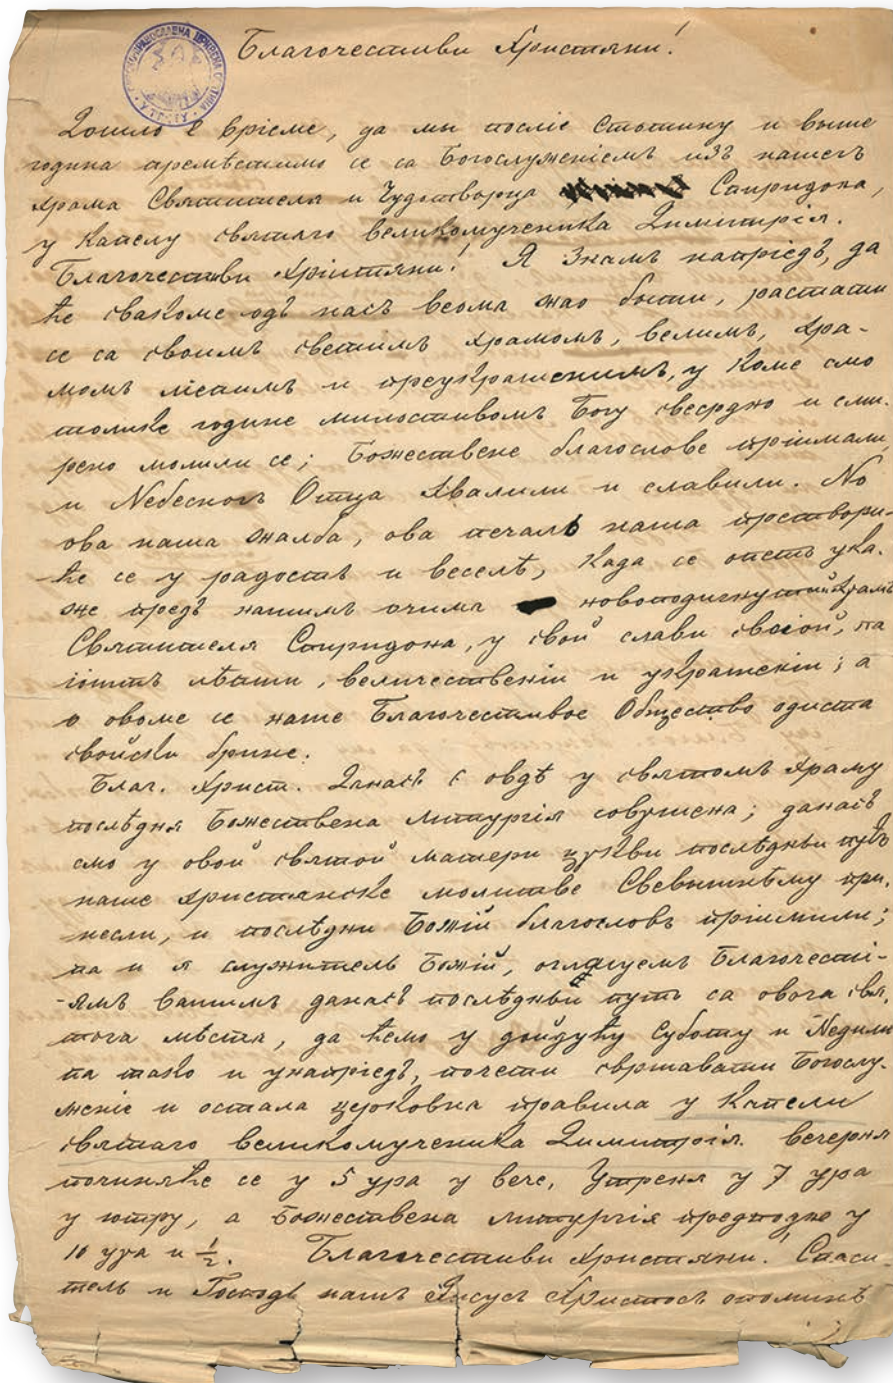 Благочестиви Христяни!
Дошло є врієме, да мы послiє стотину и выше
година премѣстимо се са Богослуженіемъ изъ нашегъ
храма Святителя и Чудотворца Спиридона,
у капелу святаго великомученика Димитрія.
Благочестиви Хрістяни! Я знамъ напріедъ, да
ће свакоме одъ насъ веома жао быти, растати
се са своимъ светимъ храмомъ, велимъ, хра-
момъ лѣепимъ и преукрашенимъ, у коме смо
толике године милостивомъ Богу свесрдно и сми-
рено молили се; Божествене благослове пріимали,
и Небесногъ Отца хвалили и славили. No
ова наша жалба, ова печаль наша претвори-
ће се у радость и веселѣ, када се опетъ ука-
же предъ нашимъ очима новоподигнутый храмъ
Святителя Спиридона, у свой слави своіой, па
іоштъ лѣпши, величественіи и украшеніи; а
о овоме се наше Благочестивое Общество одиста
свойски брине.
Благ. Христ. Данасъ є овдѣ у святомъ храму
послѣдня Божествена литургія совршена; данасъ
смо у овой святой матери цркви послѣдньи путъ
наше христянске молитве Свевышнѣму при-
несли, и послѣдни Божій благословъ пріимили;
па и я служитель Божій, оглашуемъ Благочесті-
-ямъ вашимъ данасъ послѣдньи путъ са овога свя-
тога мѣста, да ћемо у дойдућу Суботу и Недилю
па тако и унапріедъ, почети свршавати Богослу-
женіе и остала церковна правила у Капели
святаго великомученика Димитрія. Вечерня
починяће се у 5 ура у вече, Утреня у 7 ура
у ютру, а Божествена литургія предподне у
10 ура и 1/2. Благочестиви Христяни! Спаси-
тель и Господь нашъ Іисусъ Христосъ опоминѣ